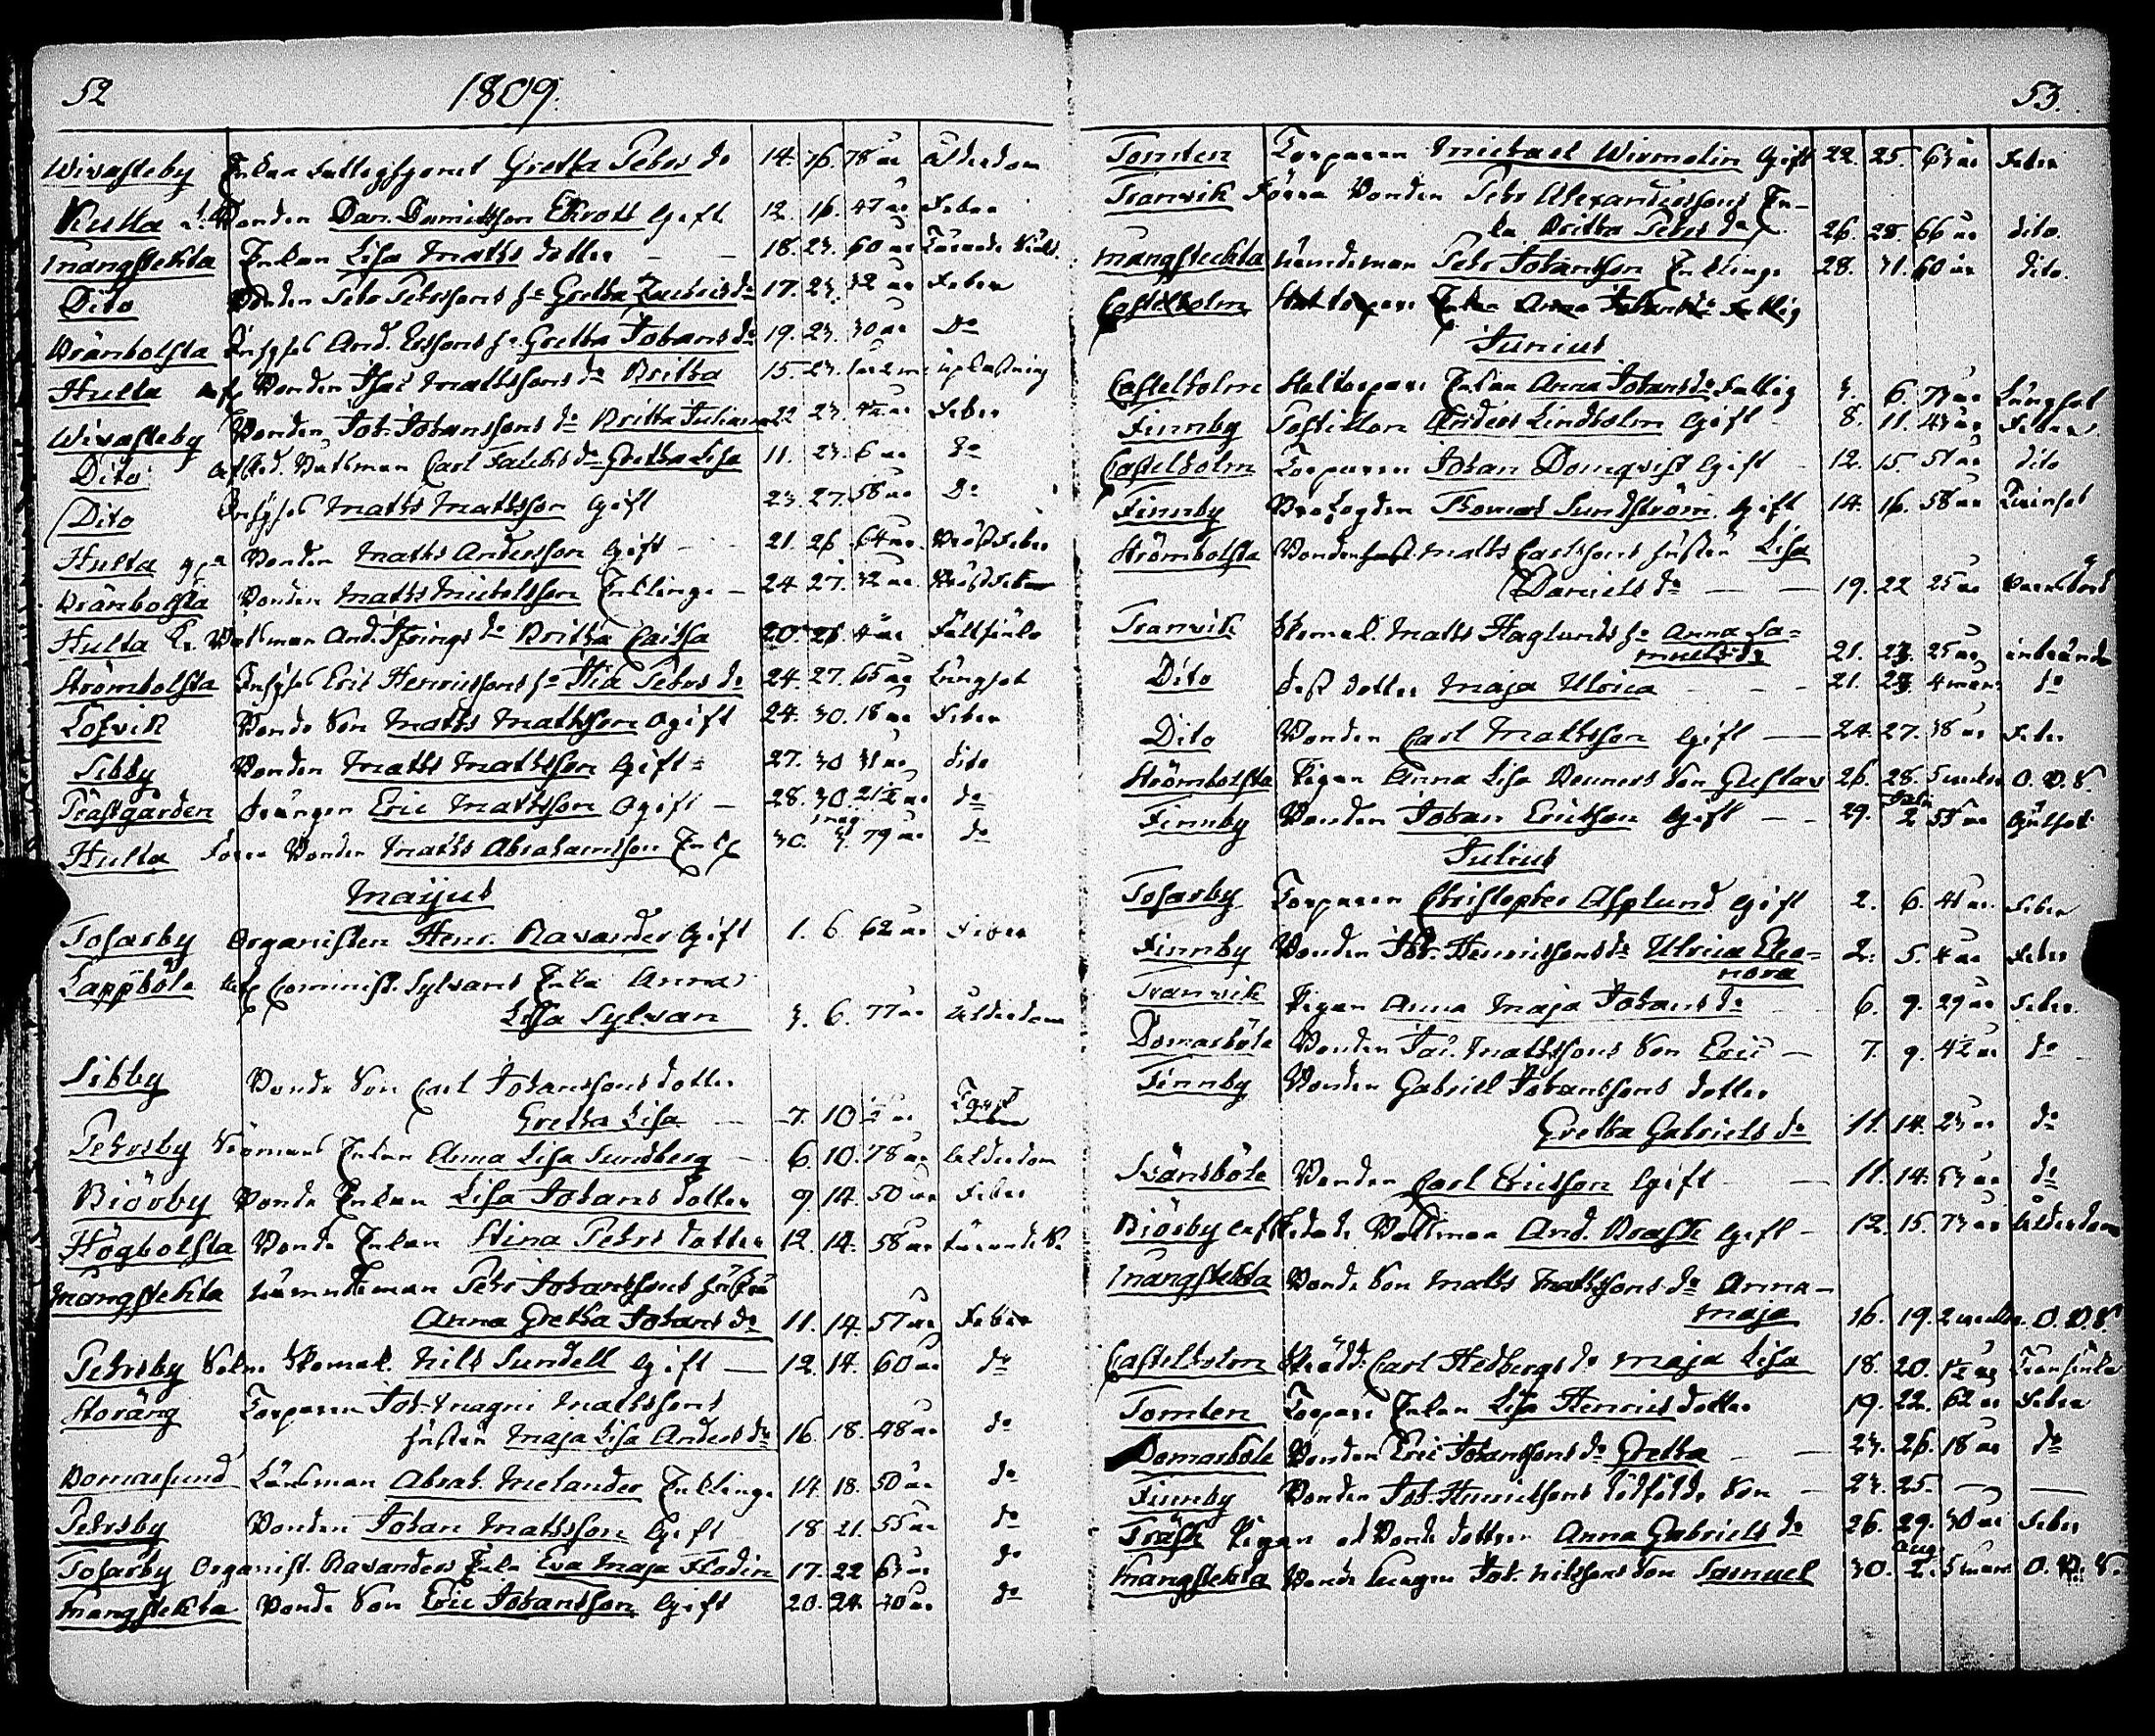 52 1809.
Wivasteby Enkan Fattighjonet Gretha Pehrs dr 14. 16 78 år ålderdom
Kulla Bonden Dan. Danielsson Ekrot Gift 12. 16. 47 år Feber
Mångstekta Enkan Lisa Maths dotter 18. 23. 60 år
Dito Bonden Pehr Pehrssons h. Gretha Zachrisdr 17. 23. 32 år Feber
Bränbolsta Inhyses And. Erssons h. Gretha Johans dr 19. 23. 30 år Do
Hulta Bonden Isac Mathssons dr Britha 15. 23.
Wivasteby Bonden Joh. Johanssons dr Britha Juliana 22 23. Feber
Dito Båtsman Carl Falcks dr Gretha Lisa 11. 23. 6 år Do
Dito Inhyses Maths Mathsson Gift 23. 27. 58 år Do
Hulta Bonden Maths Andersson Gift 21. 26. 64 år. Bröstfeber
Bränbolsta Bonden Maths Michelsson Enkling 24 27. 32 år. Bröstfeber
Hulta Båtsman And. Isrings dr Britha Caisa 20. 26 4 år
Strömbolsta Inhyses Eric Henricssons h. Stina Pehrs dr 24. 27. 65 år Lungsot
Lofvik Bonde Son Maths Mathsson Ogift 24. 30. 18 år Feber
Sibby Bonden Maths Mathsson Gift 27. 30 dito
Prästgården Drängen Eric Mathsson Ogift 28. 30. 21½ år do
Hulta Förra Bonden Maths Abrahamsson Enkl 30. Maj 3. 79 år do
Maijus
Tosarby Organisten Henr. Ravander Gift 1. 6. 62 år Feber
Lappböle Commiss. Sylvans Enka Anna
Lisa Sylvan 3. 6. 77 år Ålderdom
Sibby Bonde Son Carl Johanssons dotter
Gretha Lisa 7. 10 ½ år
Pehrsby Enkan Anna Lisa Sundberg 6. 10. 78 år Ålderdom
Biörby Bonde Enkan Lisa Johans dotter 9. 14. 50 år Feber
Högbolsta Bonde Enkan Stina Pehrs dotter 12. 14. 58 år
Mångstekta Nämndeman Pehr Johanssons hustru
Anna Gretha Johans dr 11. 14. 57 år Feber
Pehrsby Skomak. Nils Sundell Gift 12. 14. 60 år do
Storäng Torparen Joh. Magni Mathssons
hustru Maja Lisa Anders dr 16. 18. 48 år do
Bomarsund Länsman Abrah. Melander Enkling. 14. 18. 50 år do
Pehrsby Bonden Johan Mathsson Gift 18 21. 55 år do
Tosarby Organist. Ravanders Enka Eva Maja Flodin 17. 22 63 år do
Mångstekta Bonde Son Eric Johansson Gift 20. 24. 30 år do
53.
Tomten Torparen Michael Wirmolin Gift 22. 25. 63 år Feber
Tranvik Förra Bonden Pehr Alexanderssons En-
ka Britha Pehrs dr 26. 28. 66 år dito.
Mångstekta Nämdeman Pehr Johansson Enkling 28. 31. 60 år dito.
Castelholm Stattorpare Enkan Anna Johansdr Fattig
Junius
Castelholm Stattorpare Enkan Anna Johansdr Fattig 3. 6. 79 år Lungsot
Finnby Postiljon Anders Lindholm Gift 8. 11. 43 år Feber
Castelholm Torparen Johan Domqvist Gift 12. 15. 51 år dito
Finnby Thomas Sundström Gift 14. 16. 58 år
Strömbolsta Bonden Maths Carlssons hustru Lisa
Daniels dr 19. 22 25 år Barnsbörd
Tranvik Skomak. Maths Haglunds h. Anna Sa-
muels dr 21. 23. 25 år inbränd
Dito dess dotter Maja Ulrica 21. 23. 4 mån. do
Dito Bonden Carl Mathsson Gift 24. 27. 38 år Feber
Strömbolsta Pigan Anna Lisa Renners Son Gustav 26. 28. 5 veckor O. B. S.
Finnby Bonden Johan Ericsson Gift 29. Julii 2 55 år Gulsot
Julius
Tosarby Torparen Christopher Asplund Gift 2. 6. 41 år. Feber
Finnby Bonden Joh. Henricssons dr Ulrica Eleo-
nora 2. 5. 4 år Feber
Tranvik Pigan Anna Maja Johans dr 6. 9. 29 år Feber.
Domarböle Bonden Jac. Mathssons Son Eric 7. 9. 4½ år do
Finnby Bonden Gabriel Johanssons dotter
Gretha Gabriels dr 11. 14. 23 år do
Svänsböle Bonden Carl Ericsson Gift 11. 14. 53 år do
Biörby Afskedade Båtsman And. Brask Gift 12. 15. 73 år Ålderdom
Mångstekta Bonde Son Maths Mathssons dr Anna
Maja 16. 19. 2 O. B. S.
Castelholm Skrädd. Carl Hedbergs dr Maja Lisa 18. 20. 1½ år
Tomten Torpare Enkan Lisa Henrics dotter 19. 22. 62 år Feber
Domarböle Bonden Eric Johanssons dr Gretha 23. 26. 18 år do
Finnby Bonden Joh. Henricssons dödfödde Son 23. 25.
Träsk Pigan od Bonde dottren Anna Gabriels dr 26. 29. 30 år Feber
Mångstekta Bonde Joh. Nilssons Son Samuel 30. Aug. 2. 5 mån. O. B. S.